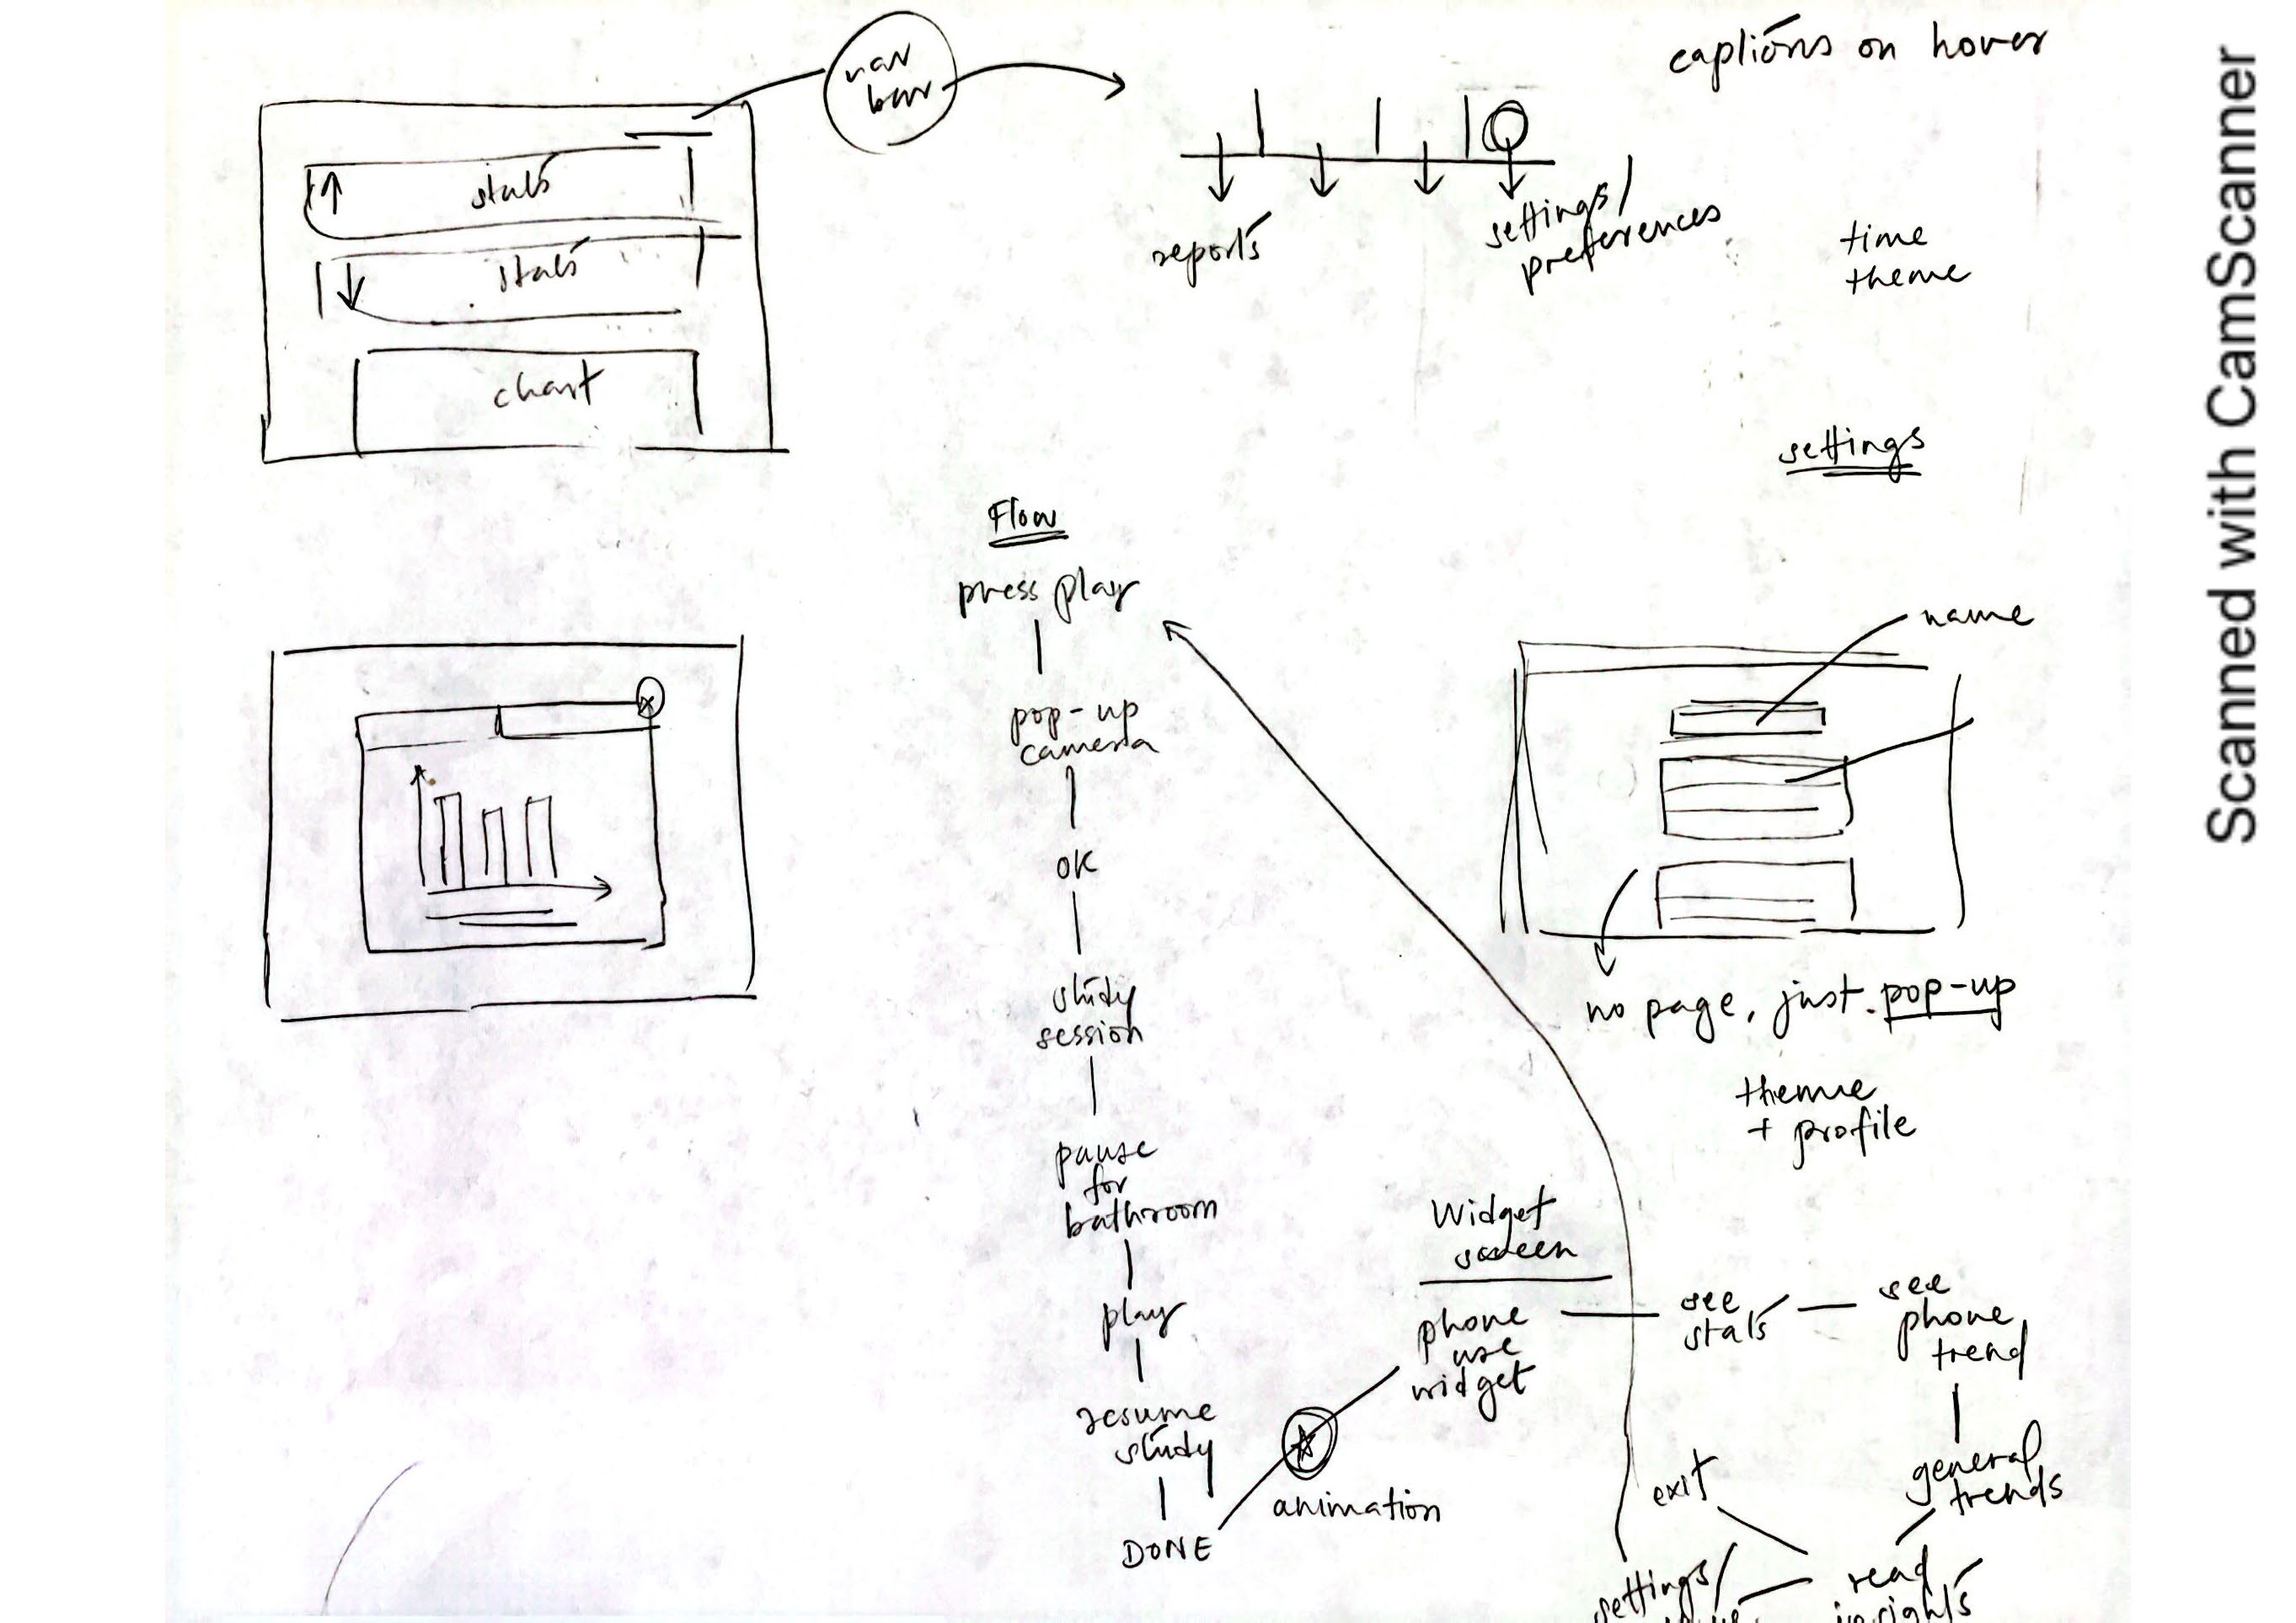 nav
bar
captions on hover
stats
stats
chart
reports
settings/
preferences
time
theme
settings
Flow
press play
pop-up
camera
OK
study
session
pause
for
bathroom
play
resume
study
DONE
animation
name
no page, just pop-up
theme
+ profile
Widget
screen
phone
use
widget
see
stats
see
phone
trend
general
trends
exit
read
insights
settings/
Scanned with CamScanner